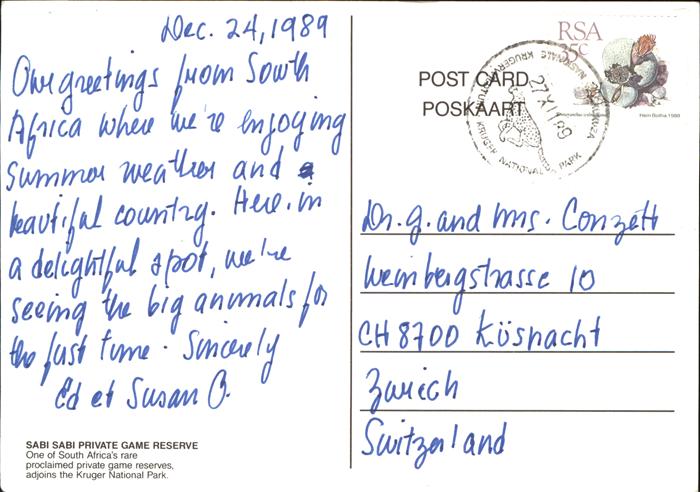 Dec. 24, 1989
Our greetings from South
Africa where we're enjoying
summer weather and a
beautiful country. Here, in
a delightful spot, we're
seeing the big animals for
the first time. Sincerely
Ed et Susan O.
SABI SABI PRIVATE GAME RESERVE
One of South Africa's rare
proclaimed private game reserves,
adjoins the Kruger National Park.
RSA
35c
Hein Botha 1988
POST CARD
POSKAART
27 XII 89
KRUGER NATIONAL PARK
Dr. G. and Mrs. Conzett
Weinbergstrasse 10
CH 8700 Küsnacht
Zurich
Switzerland